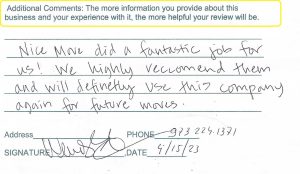 Additional Comments: The more information you provide about this
business and your experience with it, the more helpful your review will be.
Nice Move did a fantastic job for
us! We highly reccomend them
and will definetly use this company
again for future moves.
Address
PHONE 973 224.1371
SIGNATURE DATE 4/15/23